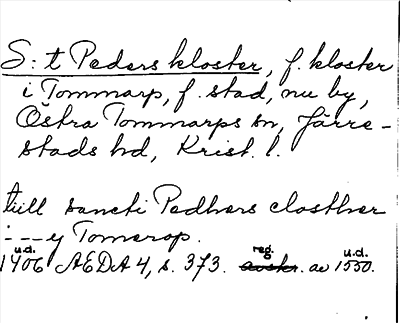 S:t Peders kloster, f. kloster
i Tommarp, f. stad, nu by,
Östra Tommarps sn, Järre-
stads hd, Krist. l.
tiill sancti Pedhers closther
---y Tomerop.
u.d. reg. u.d.
1406 AEDA 4, s. 373. avskr. av 1550.